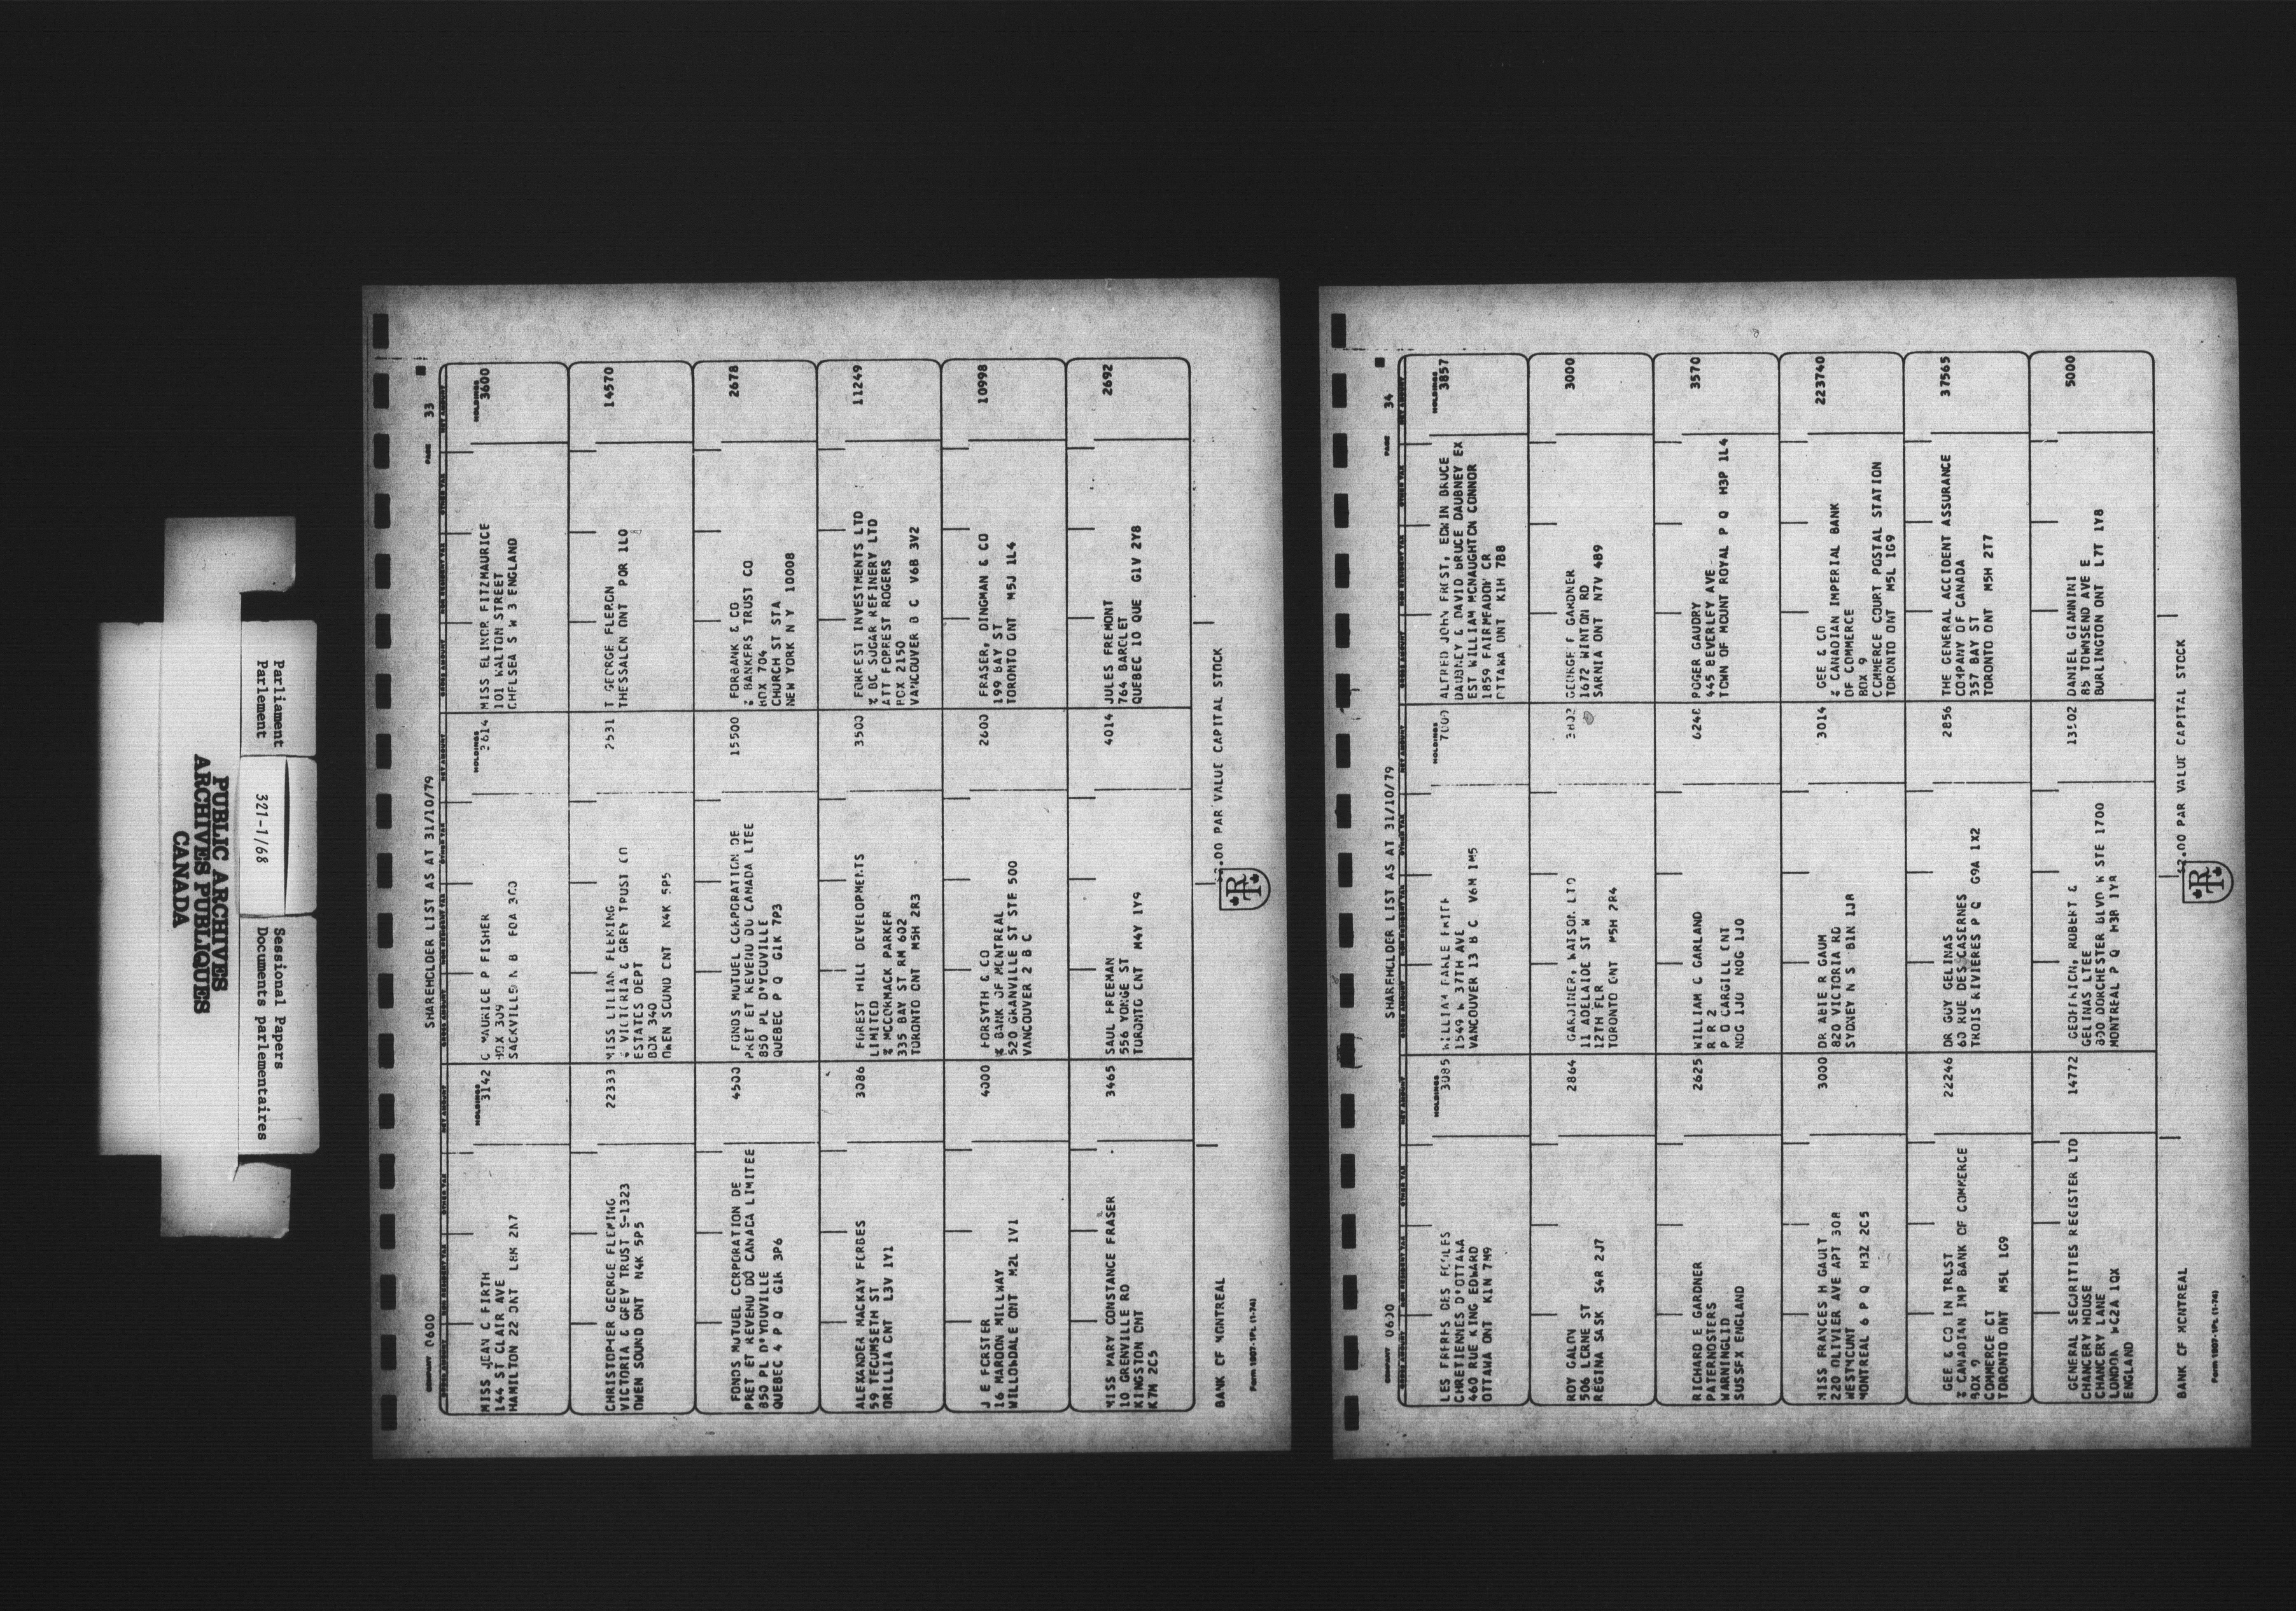 PUBLIC ARCHIVES
ARCHIVES PUBLIQUES
CANADA
Parliament
Parlement
321-1/68
Sessional Papers
Documents parlementaires
COMPANY 0600
SHAREHOLDER LIST AS AT 31/10/79
PAGE 33
MISS JEAN C FIRTH
144 ST CLAIR AVE
HAMILTON 22 ONT L8M 2N7
HOLDINGS
3142
C MAURICE P FISHER
BOX 309
SACKVILLE N B E0A 3C0
HOLDINGS
3614
MISS ELINOR FITZMAURICE
101 WALTON STREET
CHELSEA S W 3 ENGLAND
HOLDINGS
3600
CHRISTOPHER GEORGE FLEMING
VICTORIA & GREY TRUST S-1323
OWEN SOUND ONT N4K 5P5
22333
MISS LILLIAN FLEMING
% VICTORIA & GREY TRUST CO
ESTATES DEPT
BOX 340
OWEN SOUND ONT N4K 5P5
2531
T GEORGE FLERON
THESSALON ONT POR 1LO
14570
FONDS MUTUEL CORPORATION DE
PRET ET REVENU DU CANADA LIMITEE
850 PL D'YOUVILLE
QUEBEC 4 P Q G1R 3P6
4500
FONDS MUTUEL CORPORATION DE
PRET ET REVENU DU CANADA LTEE
850 PL D'YOUVILLE
QUEBEC P Q G1K 7P3
15500
FORBANK & CO
% BANKERS TRUST CO
BOX 704
CHURCH ST STA
NEW YORK N Y 10008
2678
ALEXANDER MACKAY FORBES
59 TECUMSETH ST
ORILLIA ONT L3V 1Y1
3086
FOREST HILL DEVELOPMENTS
LIMITED
% MCCORMACK PARKER
335 BAY ST RM 602
TORONTO ONT M5H 2R3
3500
FOREST INVESTMENTS LTD
% BC SUGAR REFINERY LTD
ATT FORREST ROGERS
BOX 2150
VANCOUVER B C V6B 3V2
11249
J E FORSTER
16 MAROON MILLWAY
WILLOWDALE ONT M2L 1V1
4000
FORSYTH & CO
% BANK OF MONTREAL
520 GRANVILLE ST STE 500
VANCOUVER 2 B C
2600
FRASER, DINGMAN & CO
199 BAY ST
TORONTO ONT M5J 1L4
10998
MISS MARY CONSTANCE FRASER
10 GRENVILLE RD
KINGSTON ONT
K7M 2C5
3465
SAUL FREEMAN
556 YONGE ST
TORONTO ONT M4Y 1Y9
4014
JULES FREMONT
764 BARCLET
QUEBEC 10 QUE G1V 2Y8
2692
BANK OF MONTREAL
$2.00 PAR VALUE CAPITAL STOCK
Form 1007-1PL (1-74)
COMPANY 0600
SHAREHOLDER LIST AS AT 31/10/79
PAGE 34
LES FRERES DES ECOLES
CHRETIENNES D'OTTAWA
460 RUE KING EDWARD
OTTAWA ONT K1N 7M9
HOLDINGS
3085
WILLIAM EARLE FRITH
1549 W 37TH AVE
VANCOUVER 13 B C V6M 1M5
HOLDINGS
7000
ALFRED JOHN FROST, EDWIN BRUCE
DAUBNEY & DAVID BRUCE DAUBNEY EX
EST WILLIAM MCNAUGHTON CONNOR
1859 FAIRMEADOW CR
OTTAWA ONT K1H 7B8
HOLDINGS
3857
ROY GALON
506 LORNE ST
REGINA SASK S4R 2J7
2864
GARDINER, WATSON LTD
11 ADELAIDE ST W
12TH FLR
TORONTO ONT M5H 2R4
3802
GEORGE F GARDNER
1672 WINTON RD
SARNIA ONT N7V 4B9
3000
RICHARD E GARDNER
PATERNOSTERS
WARNINGLID
SUSSEX ENGLAND
2625
WILLIAM C GARLAND
R R 2
P O CARGILL ONT
NOG 1JO NOG 1JO
6248
ROGER GAUDRY
445 BEVERLEY AVE
TOWN OF MOUNT ROYAL P Q H3P 1L4
3570
MISS FRANCES H GAULT
220 OLIVIER AVE APT 308
WESTMOUNT
MONTREAL 6 P Q H3Z 2C5
3000
DR ABIE R GAUM
820 VICTORIA RD
SYDNEY N S B1N 1JR
3014
GEE & CO
% CANADIAN IMPERIAL BANK
OF COMMERCE
BOX 9
COMMERCE COURT POSTAL STATION
TORONTO ONT M5L 1G9
223740
GEE & CO IN TRUST
% CANADIAN IMP BANK OF COMMERCE
BOX 9
COMMERCE CT
TORONTO ONT M5L 1G9
22246
DR GUY GELINAS
60 RUE DES CASERNES
TROIS RIVIERES P Q G9A 1X2
2856
THE GENERAL ACCIDENT ASSURANCE
COMPANY OF CANADA
357 BAY ST
TORONTO ONT M5H 2T7
37565
GENERAL SECURITIES REGISTER LTD
CHANCERY HOUSE
CHANCERY LANE
LONDON WC2A 1QX
ENGLAND
14772
GEOFFRION, ROBERT &
GELINAS LTEE
800 DORCHESTER BLVD W STE 1700
MONTREAL P Q H3B 1Y8
13502
DANIEL GIANNINI
85 TOWNSEND AVE E
BURLINGTON ONT L7T 1Y8
5000
BANK OF MONTREAL
$2.00 PAR VALUE CAPITAL STOCK
Form 1007-1PL (1-74)